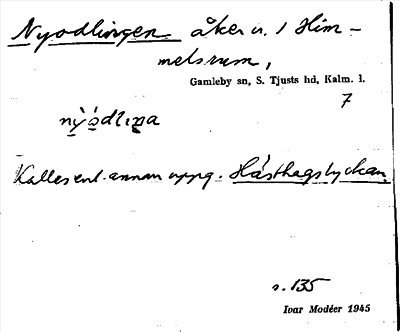 Nyodlingen åker u. 1 Him-
melsrum,
Gamleby sn, S. Tjusts hd, Kalm. l.
7
Kallas enl. annan uppg. Hästhagslyckan.
s. 135
Ivar Modéer 1945